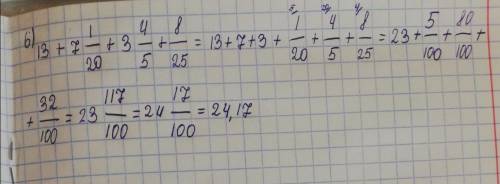 б) 13 + 7 1/20 + 3 4/5 + 8/25 = 13 + 7 + 3 + 1/20 + 4/5 + 8/25 = 23 + 5/100 + 80/100 +
+ 32/100 = 23 117/100 = 24 17/100 = 24,17